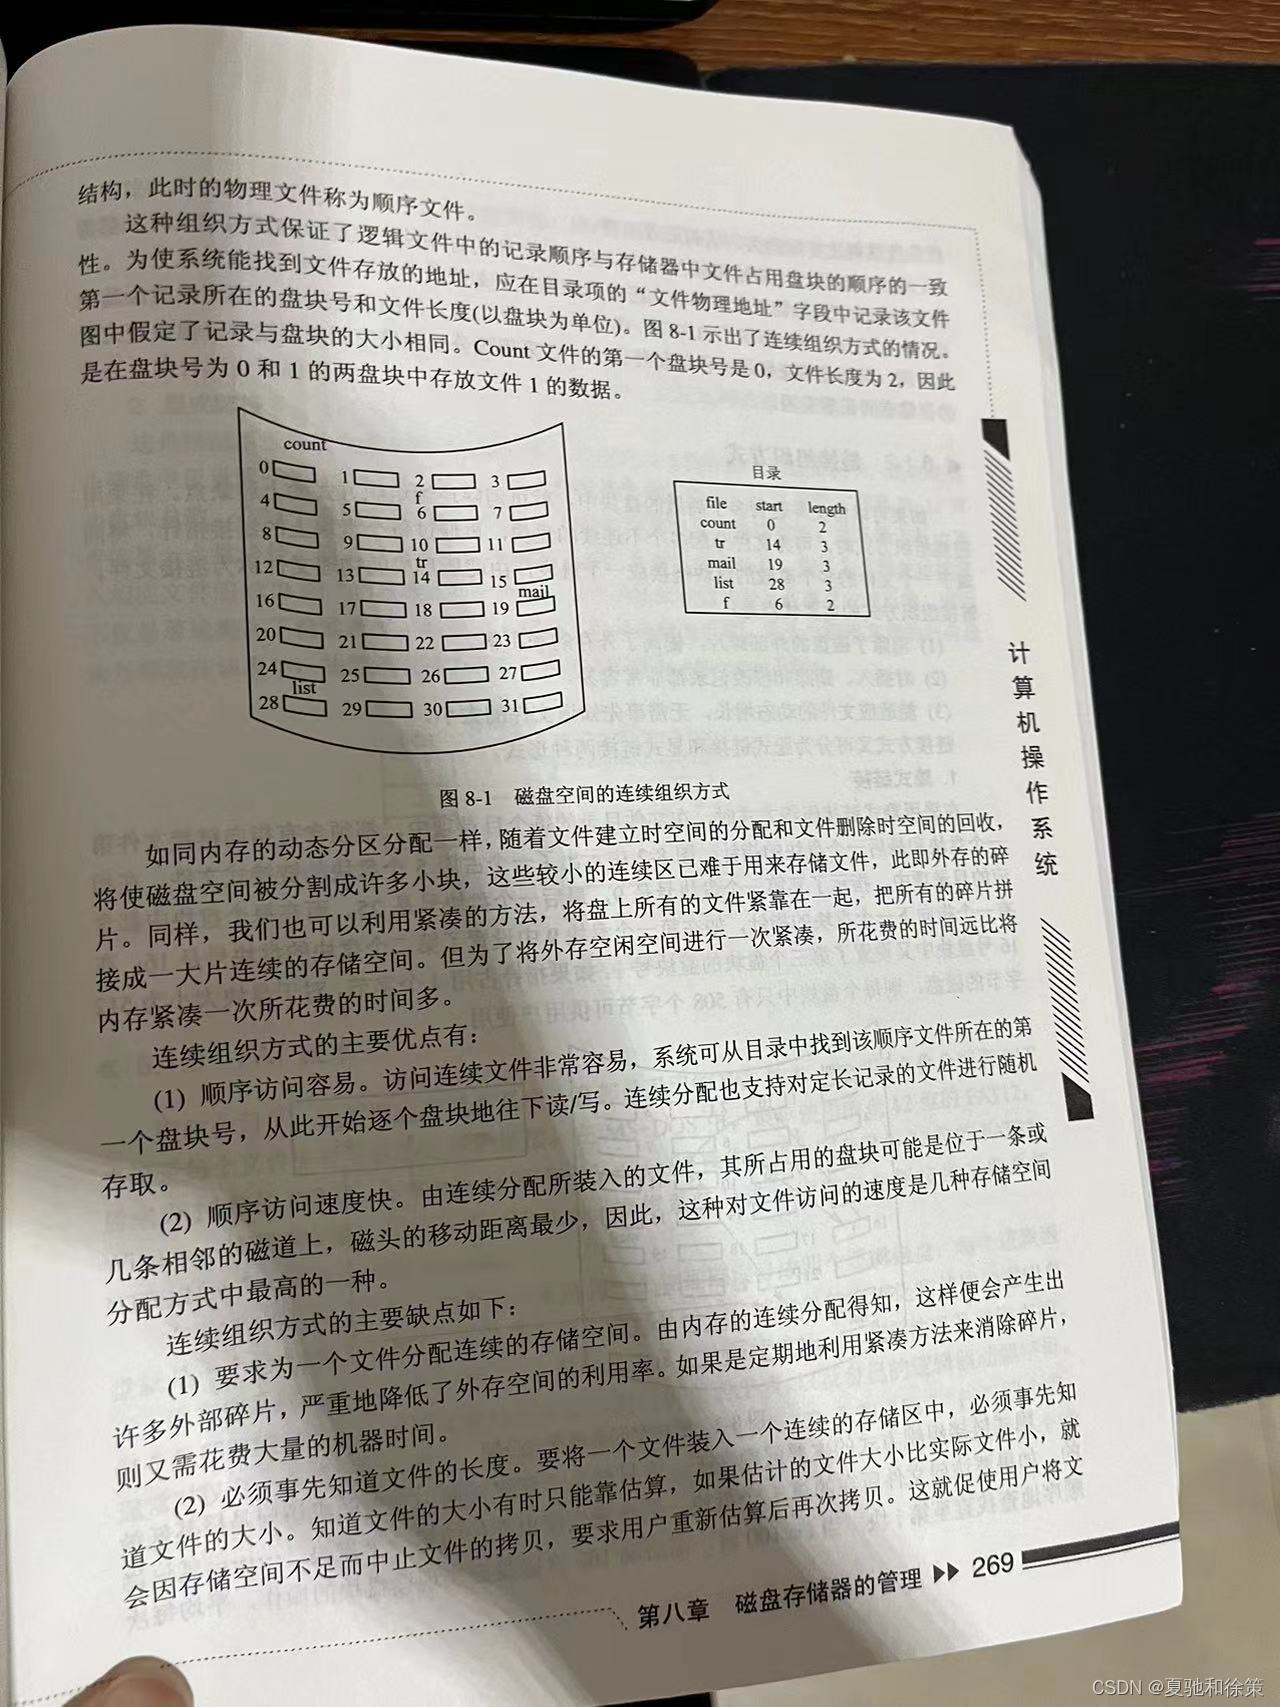 结构，此时的物理文件称为顺序文件。
这种组织方式保证了逻辑文件中的记录顺序与存储器中文件占用盘块的顺序的一致
性。为使系统能找到文件存放的地址，应在目录项的“文件物理地址”字段中记录该文件
第一个记录所在的盘块号和文件长度(以盘块为单位)。图 8-1 示出了连续组织方式的情况。
图中假定了记录与盘块的大小相同。Count 文件的第一个盘块号是 0，文件长度为 2，因此
是在盘块号为 0 和 1 的两盘块中存放文件 1 的数据。
count
0 1 2 3
f
4 5 6 7
8 9 10 11
tr
12 13 14 15
mail
16 17 18 19
20 21 22 23
24 25 26 27
list
28 29 30 31
目录
file start length
count 0 2
tr 14 3
mail 19 3
list 28 3
f 6 2
图 8-1 磁盘空间的连续组织方式
如同内存的动态分区分配一样，随着文件建立时空间的分配和文件删除时空间的回收，
将使磁盘空间被分割成许多小块，这些较小的连续区已难于用来存储文件，此即外存的碎
片。同样，我们也可以利用紧凑的方法，将盘上所有的文件紧靠在一起，把所有的碎片拼
接成一大片连续的存储空间。但为了将外存空闲空间进行一次紧凑，所花费的时间远比将
内存紧凑一次所花费的时间多。
连续组织方式的主要优点有：
(1) 顺序访问容易。访问连续文件非常容易，系统可从目录中找到该顺序文件所在的第
一个盘块号，从此开始逐个盘块地往下读/写。连续分配也支持对定长记录的文件进行随机
存取。
(2) 顺序访问速度快。由连续分配所装入的文件，其所占用的盘块可能是位于一条或
几条相邻的磁道上，磁头的移动距离最少，因此，这种对文件访问的速度是几种存储空间
分配方式中最高的一种。
连续组织方式的主要缺点如下：
(1) 要求为一个文件分配连续的存储空间。由内存的连续分配得知，这样便会产生出
许多外部碎片，严重地降低了外存空间的利用率。如果是定期地利用紧凑方法来消除碎片，
则又需花费大量的机器时间。
(2) 必须事先知道文件的长度。要将一个文件装入一个连续的存储区中，必须事先知
道文件的大小。知道文件的大小有时只能靠估算，如果估计的文件大小比实际文件小，就
会因存储空间不足而中止文件的拷贝，要求用户重新估算后再次拷贝。这就促使用户将文
第八章 磁盘存储器的管理 269
计算机操作系统
CSDN @夏驰和徐策